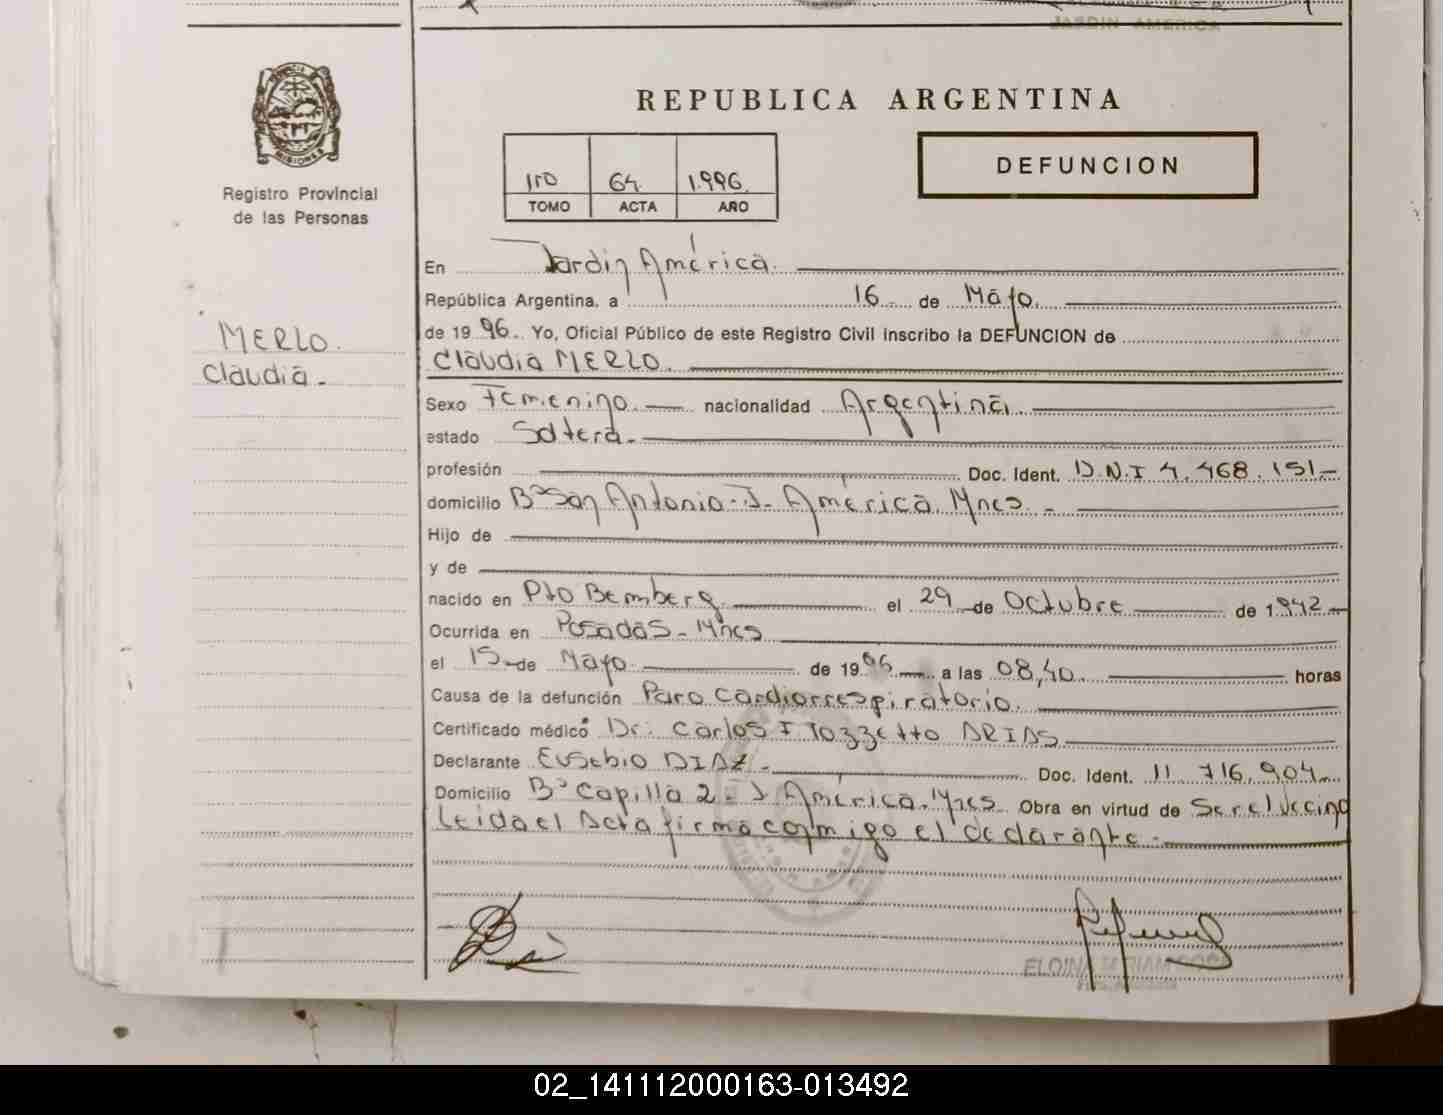 JARDIN AMERICA
PROVINCIA DE
MISIONES
Registro Provincial
de las Personas
REPUBLICA ARGENTINA
DEFUNCION
1ro 64. 1.996.
TOMO ACTA AÑO
En Jardin América.
República Argentina, a 16 de Mayo.
de 19 96. Yo, Oficial Público de este Registro Civil inscribo la DEFUNCION de
Claudia MERLO.
MERLO.
Claudia.-
Sexo Femenino. nacionalidad Argentina.
estado Soltera.-
profesión Doc. Ident. D.N.I 4.468.151-
domicilio Bº San Antonio-J. América. Mnes. -
Hijo de
y de
nacido en Pto Bemberg. el 29 de Octubre de 1.942-
Ocurrida en Posadas - Mnes
el 15- de Mayo. de 19 96 a las 08,40. horas
Causa de la defunción Paro cardiorrespiratorio.
Certificado médico Dr: Carlos I Tozzetto ARIAS
Declarante Eusebio DIAZ.- Doc. Ident. 11.716.904
Domicilio Bº Capilla 2 - J. América. Mnes Obra en virtud de Ser el Vecino
Leida el Acta firma conmigo el declarante.-
02_141112000163-013492